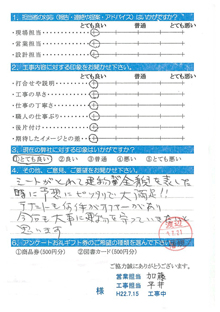 1. 担当者の対応（報告・連絡の回数・アドバイス）はいかがですか？
とても良い 普通 とても悪い
・現場担当
・営業担当
・設計担当
2. 工事内容に対する印象をお聞かせ下さい。
とても良い 普通 とても悪い
・打合せや説明
・工事の早さ
・仕事の丁寧さ
・職人の仕事ぶり
・後片付け
・期待したイメージとの差
3. 現在の弊社に対する印象はいかがですか？
①とても良い ②良い ③普通 ④悪い ⑤とても悪い
4. その他、ご意見、ご要望などお聞かせ下さい。
シートがとれて建物が全貌を表した
時に予想にピッタリで大満足!!
今后も大事に
思います
6. アンケートお礼ギフト券のご希望の種類を選んで下さい。
①商品券(500円分) ②図書カード(500円分)
ご協力誠にありがとうございます。
営業担当 加藤
様 工事担当 平井
H22.7.15 工事中